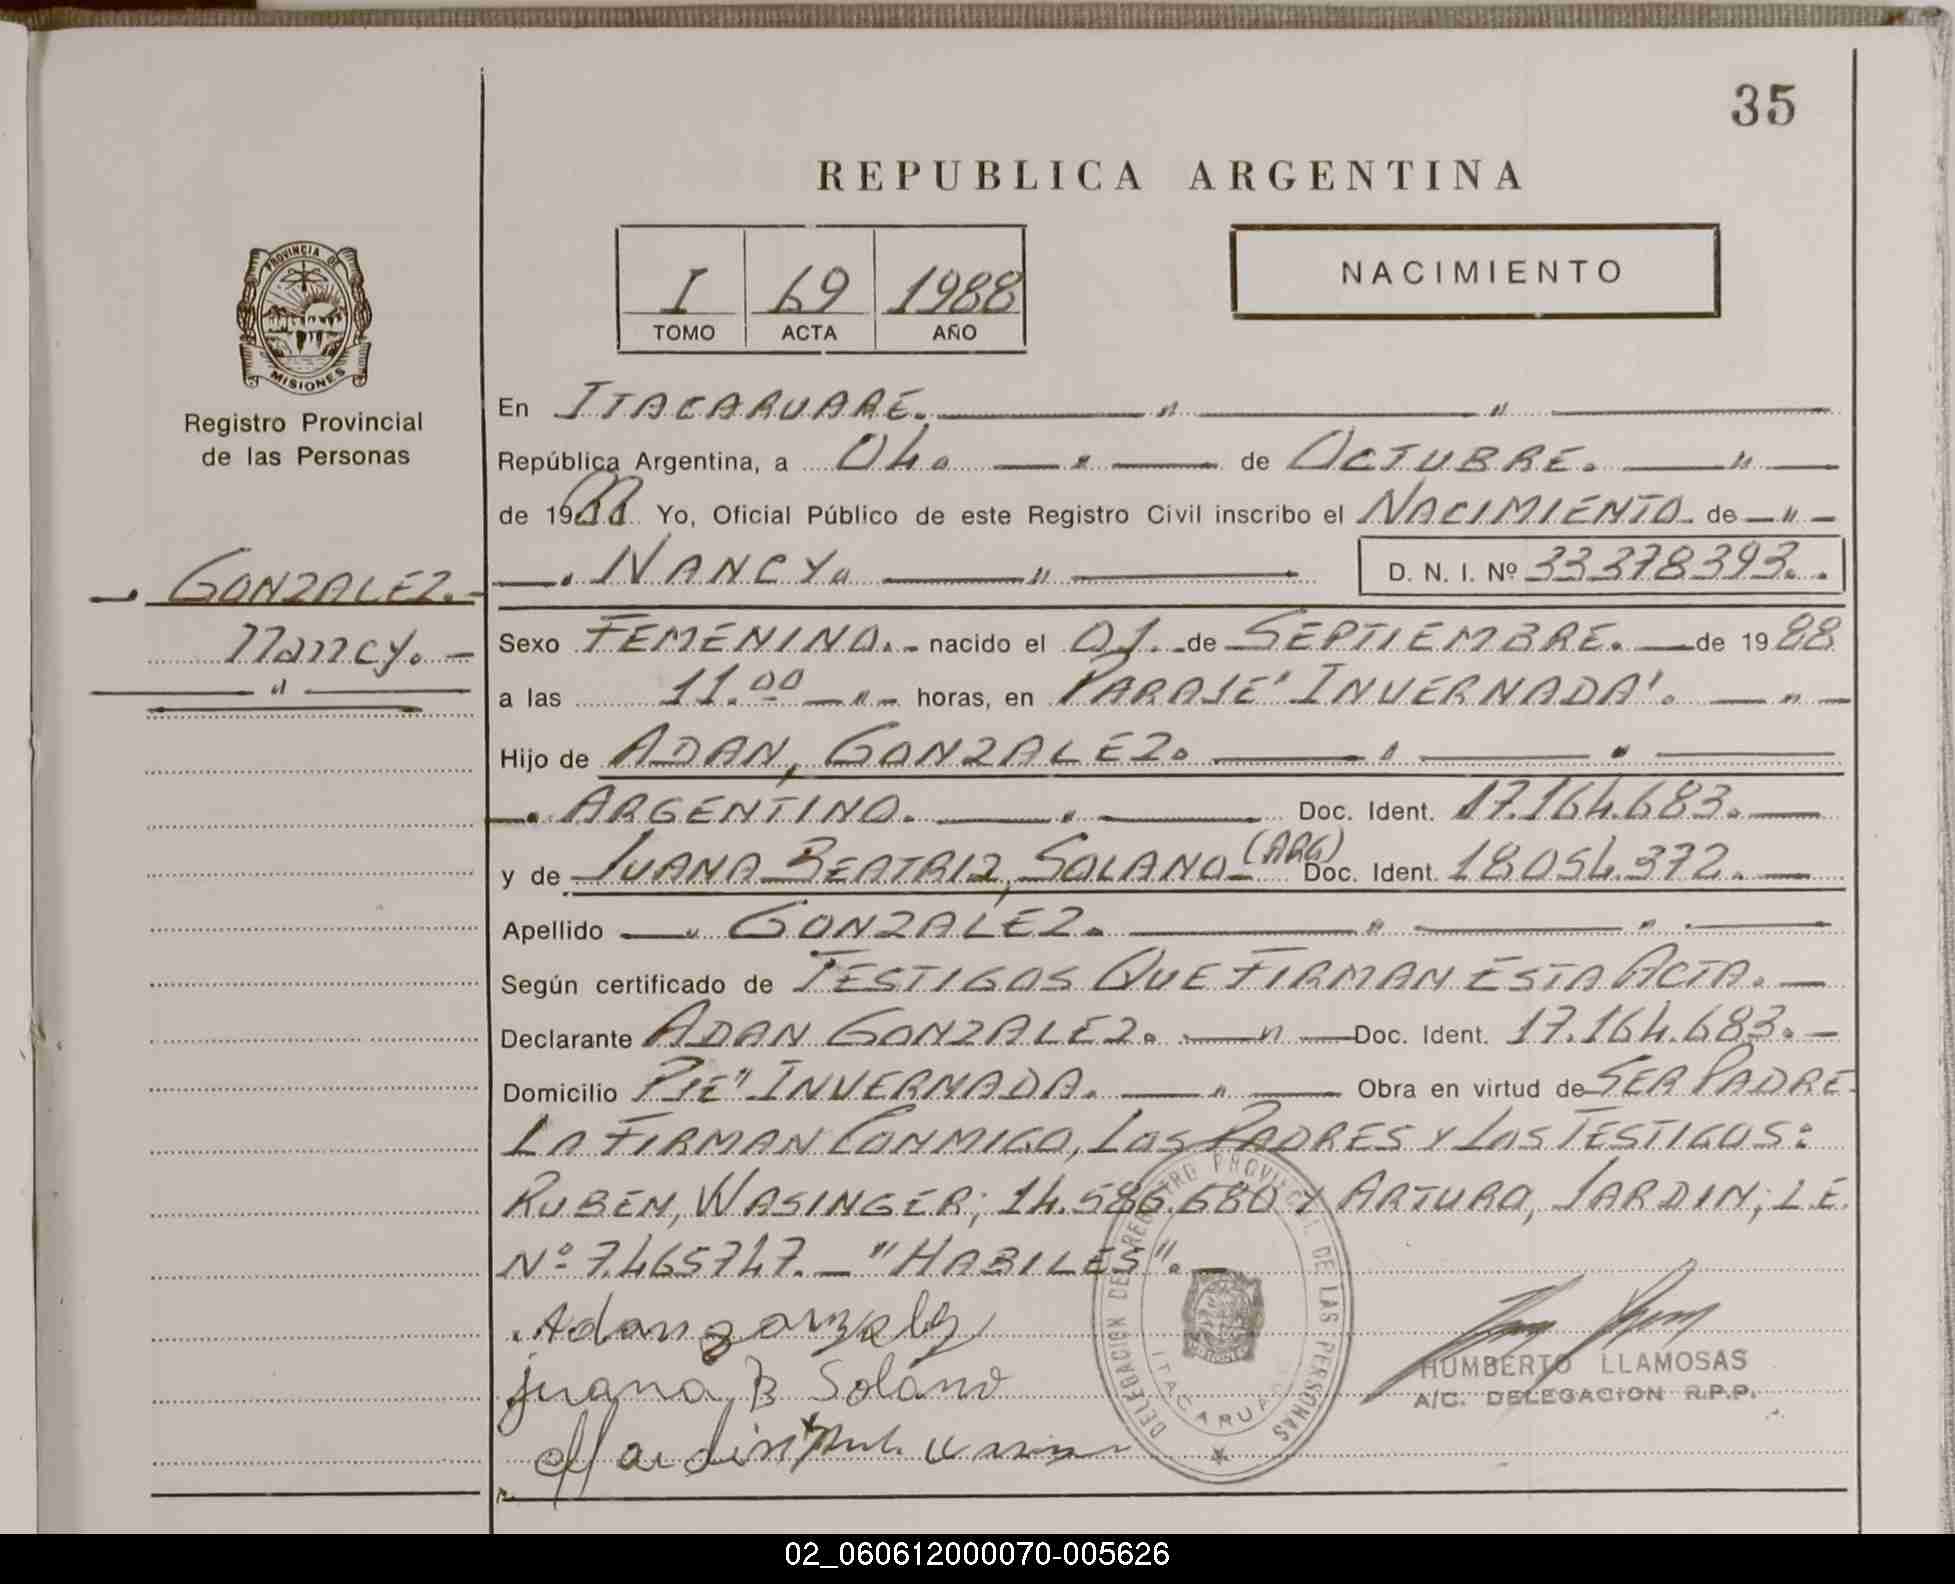 35
REPUBLICA ARGENTINA
PROVINCIA DE
MISIONES
Registro Provincial
de las Personas
I 69 1988
TOMO ACTA AÑO
NACIMIENTO
En ITACARUARE. — " — " —
República Argentina, a 04. — " — de OCTUBRE. — " —
de 1988 Yo, Oficial Público de este Registro Civil inscribo el NACIMIENTO de — " —
— . NANCY. — " — D. N. I. Nº 33378393..
— . GONZALEZ. —
Nancy. —
— " —
Sexo FEMENINO. - nacido el 01. de SEPTIEMBRE. — de 1988
a las 11.00 — " - horas, en PARAJE "INVERNADA". — " —
Hijo de ADAN, GONZALEZ. — " — " —
— . ARGENTINO. — " — Doc. Ident. 17.164.683. —
y de JUANA BEATRIZ, SOLANO - (ARG) Doc. Ident. 18.054.372. —
Apellido — " GONZALEZ. — " — " —
Según certificado de TESTIGOS QUE FIRMAN ESTA ACTA. —
Declarante ADAN GONZALEZ. — " — Doc. Ident. 17.164.683. —
Domicilio PJE" INVERNADA. — " — Obra en virtud de SER PADRE-
LA FIRMAN CONMIGO, LOS PADRES Y LOS TESTIGOS:
RUBEN, WASINGER; 14.586.680 Y ARTURO, JARDIN; L.E.
Nº 7.465747. — "HABILES". —
Adan gonzalez
juana B Solano
DELEGACION DEL REGISTRO PROVINCIAL DE LAS PERSONAS
ITACARUARE
HUMBERTO LLAMOSAS
A/C. DELEGACION R.P.P.
02_060612000070-005626